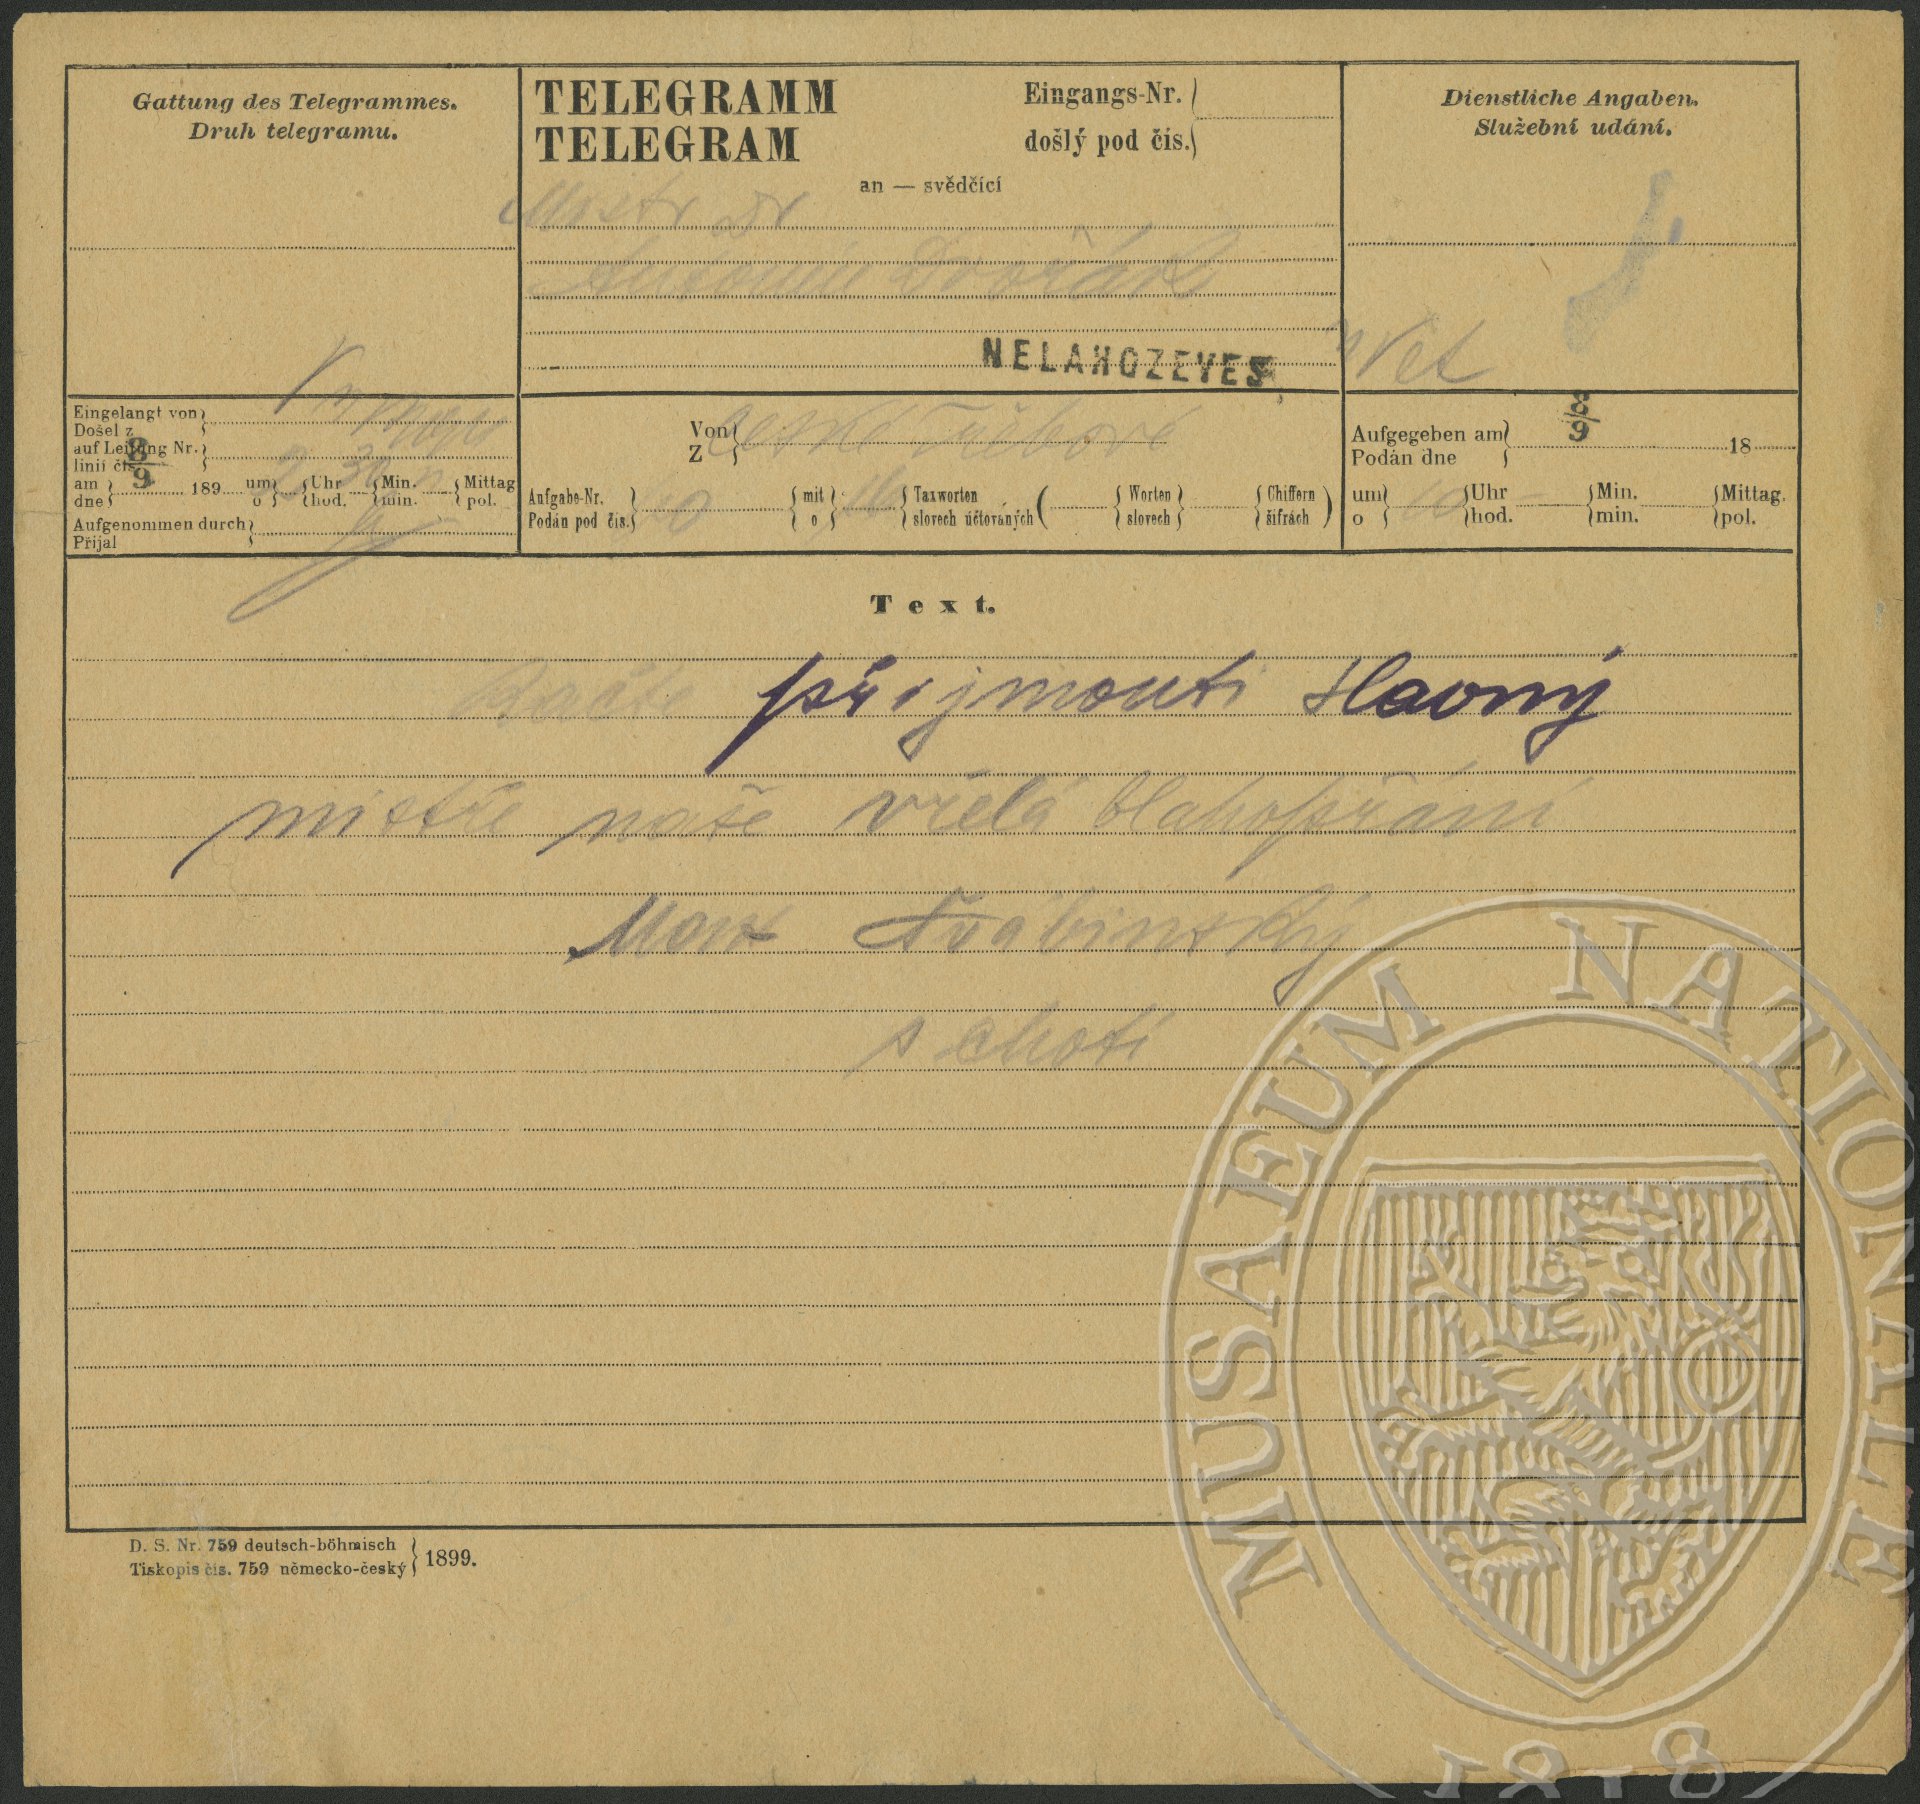 Gattung des Telegrammes.
Druh telegramu.
TELEGRAMM
TELEGRAM
Eingangs-Nr.
došlý pod čís.
an — svědčící
Dienstliche Angaben.
Služební udání.
Mistr Dr
Antonín Dvořák
NELAHOZEVES
Eingelangt von
Došel z
auf Leitung Nr.
linii čís.
8/9
am
dne
189
um
o
2
Uhr
hod.
30
Min.
min.
Mittag
pol.
Aufgenommen durch
Přijal
Von
Z
České Třebové
Aufgabe-Nr.
Podán pod čís.
mit
o
16
Taxworten
slovech účtovaných
Worten
slovech
Chiffern
šifrách
Aufgegeben am
Podán dne
8/9
18
um
o
10
Uhr
hod.
Min.
min.
Mittag.
pol.
Text.
Račte přijmouti slavný
mistře naše vřelá blahopřání
Max Švabinský
s chotí
D. S. Nr. 759 deutsch-böhmisch
Tiskopis čís. 759 německo-český
1899.
MUSAEUM NATIONALE
1818